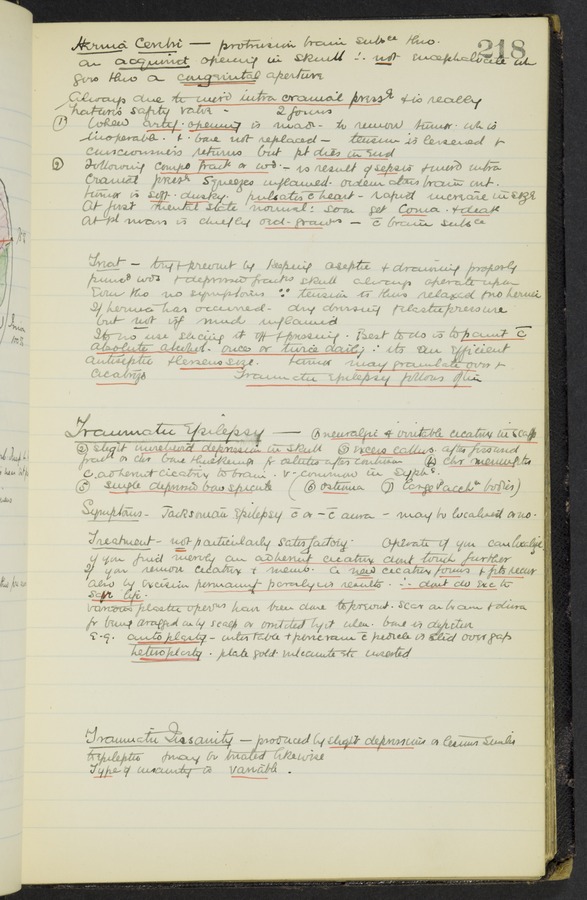 218
Hernia Cerebri — protrusion brain subce thro.
an acquired opening in skull ∴ not encephalocele wh
goes thro a congenital aperture
Always due to incrd intra cranial pressr & is really
nature's safety valve - 2 forms
① When artif. opening is made to remove tumor wh is
inoperable & bone not replaced — tension is lessened &
consciousness returns but pt dies in end
② Following compd fract or wd - as result of sepsis & incrd intra
cranial pressr squeezes inflamed oedematous brain out.
tumor is soft dusky pulsates c̄ heart - rapid increase in size
At first mental state normal: soon get Coma & death
At 1st mass is chiefly grans — c̄ brain subce
Treat — try & prevent by keeping aseptic & draining properly
punctd wds & depressed fracts skull always operate upon
Even tho no symptoms ∵ tension is thus relaxed & no hernia
If hernia has occurred - dry dressing & elastic pressure
but not if much inflamed
Its no use slicing it off & pressing. Best to do is to paint c̄
absolute alcohol once or twice daily: its an efficient
antiseptic & lessens size. tumor may granulate over &
cicatrize Traumatic epilepsy follows often
Traumatic Epilepsy — ① neuralgic & irritable cicatrix in scalp
② slight unrelieved depression in skull ③ excess callus after fissured
fract or chr bone thickening for osteitis after contusion ④ chr meningitis
c̄ adherent cicatrix to brain - v. common in Syph:
⑤ single depressed bone spicule (⑥ osteoma ⑦ large Pacchn bodies)
Symptoms - Jacksonian Epilepsy c̄ or — c̄ aura — may be localised or no.
Treatment - not particularly satisfactory. Operate if you can localise
if you find merely an adherent cicatrix dont touch further
If you remove cicatrix & memb. a new cicatrix forms & fits recur
also by excision permanent paralysis results ∴ dont do exc to
save life.
various plastic operns have been done to prevent scar in brain & dura
fr being dragged on by scalp or irritated by it when bone is deficient
E.g. autoplasty - outer table & pericranm c̄ pedicle is slid over gap
heteroplasty - plate gold vulcanite etc inserted
Traumatic Insanity — produced by slight depressions or lesions similar
to epileptic & may be treated likewise
Type of insanity is variable.